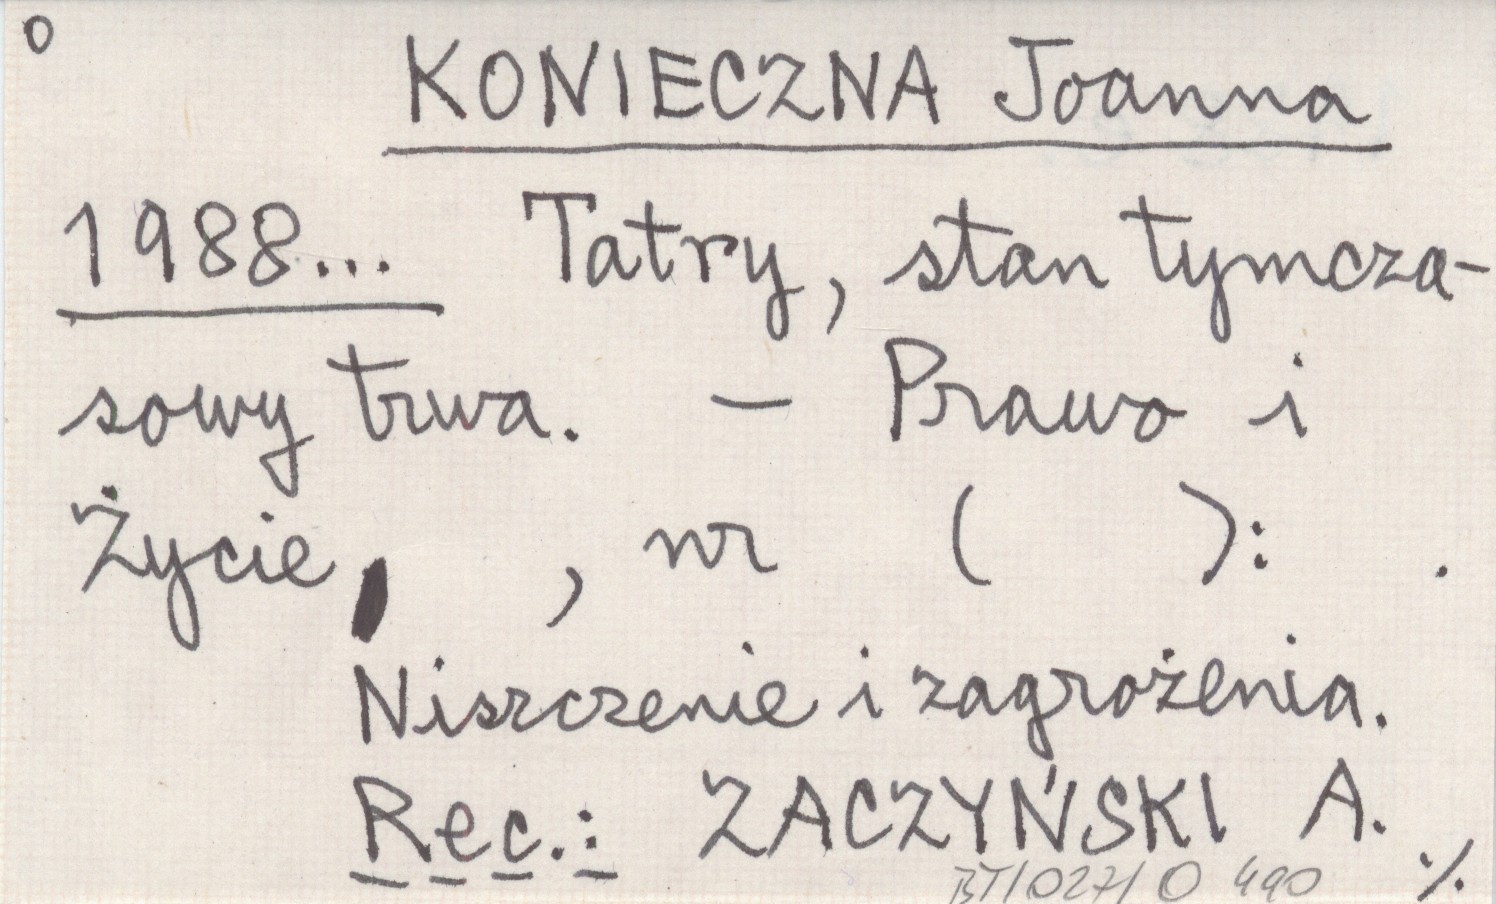 O
KONIECZNA Joanna
1988... Tatry, stan tymcza-
sowy trwa. — Prawo i
Życie, , nr ( ): .
Niszczenie i zagrożenia.
Rec.: ZACZYŃSKI A.
BT/027/O 490 ./.